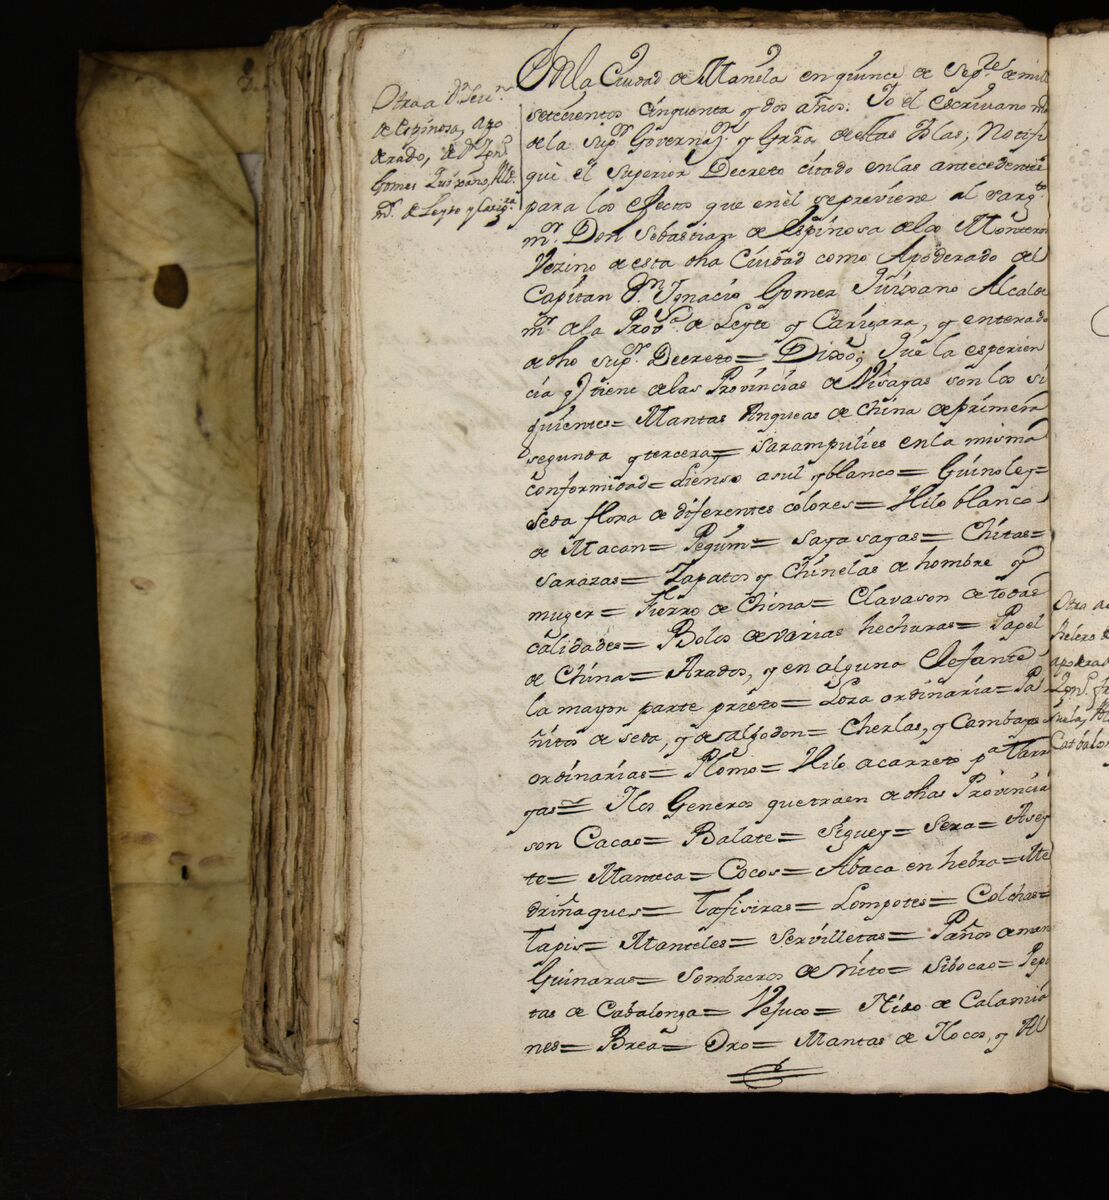 Otra a Dn Seun
de Espinosa, apo
derado, de Dn Ygno
Gomes Quixano, Alle.
mr. de Leyte y Cariga.ra
En la Ciudad de Manila en quince de Sepre de mill
setecientos cinquenta y dos años: Yo el escrivano mr
de la supr Governazn. y Grra de estas Yslas; Notifi
què el Superior Decreto citado en las antecedentes
para los efectos que en èl se previene al sargto
mr. Don Sebastian de Espinosa de los Monteros
Vezino de esta dha Ciudad como Apoderado del
Capitan Dn Ygnacio Gomez Quixano Alcalde
mr. de la Prova. de Leyte y Carigara, y enterado
de dho supr. Decreto= Dixo; Que la esperien
cia q tiene de las Provincias de Visayas son los si
guientes= Mantas Anqueas de China de primera
segunda y tercera= Sarampulies en la misma
conformidad= Lienso asul y blanco= Guinoles=
Seda floxa de diferentes colores= Hilo blanco
de Macan= Pegum= Saya sayas= Chitas=
Sarazas= Zapatos y Chinelas de hombre y
muger= Fierro de China= Clavason de todas
calidades= Bolos de varias hechuras= Papel
de China= Arados, y en alguno Elefante
la mayor parte prieto= Losa ordinaria= Pa
ñitos de seda, y de algodon= Cherlas, y Cambayas
ordinarias= Plomo= Hilo acarreto pa Tarra
yas= Y los Generos que traen de dhas Provincia
son Cacao= Balate= Siguey= Sera= Asey
te= Manteca= Cocos= Abaca en hebra= Me
driñaques= Tafisiras= Lompotes= Colchas=
Tapis= Manteles= Servilletas= Paños de mano
Guinaras= Sombreros de Nito= Sibocao= Pepi
tas de Cabalonga= Vejuco= Nido de Calamia
nes= Brea= Oro= Mantas de Ylocos, y Al
Otra a
apoderad
Catbalo